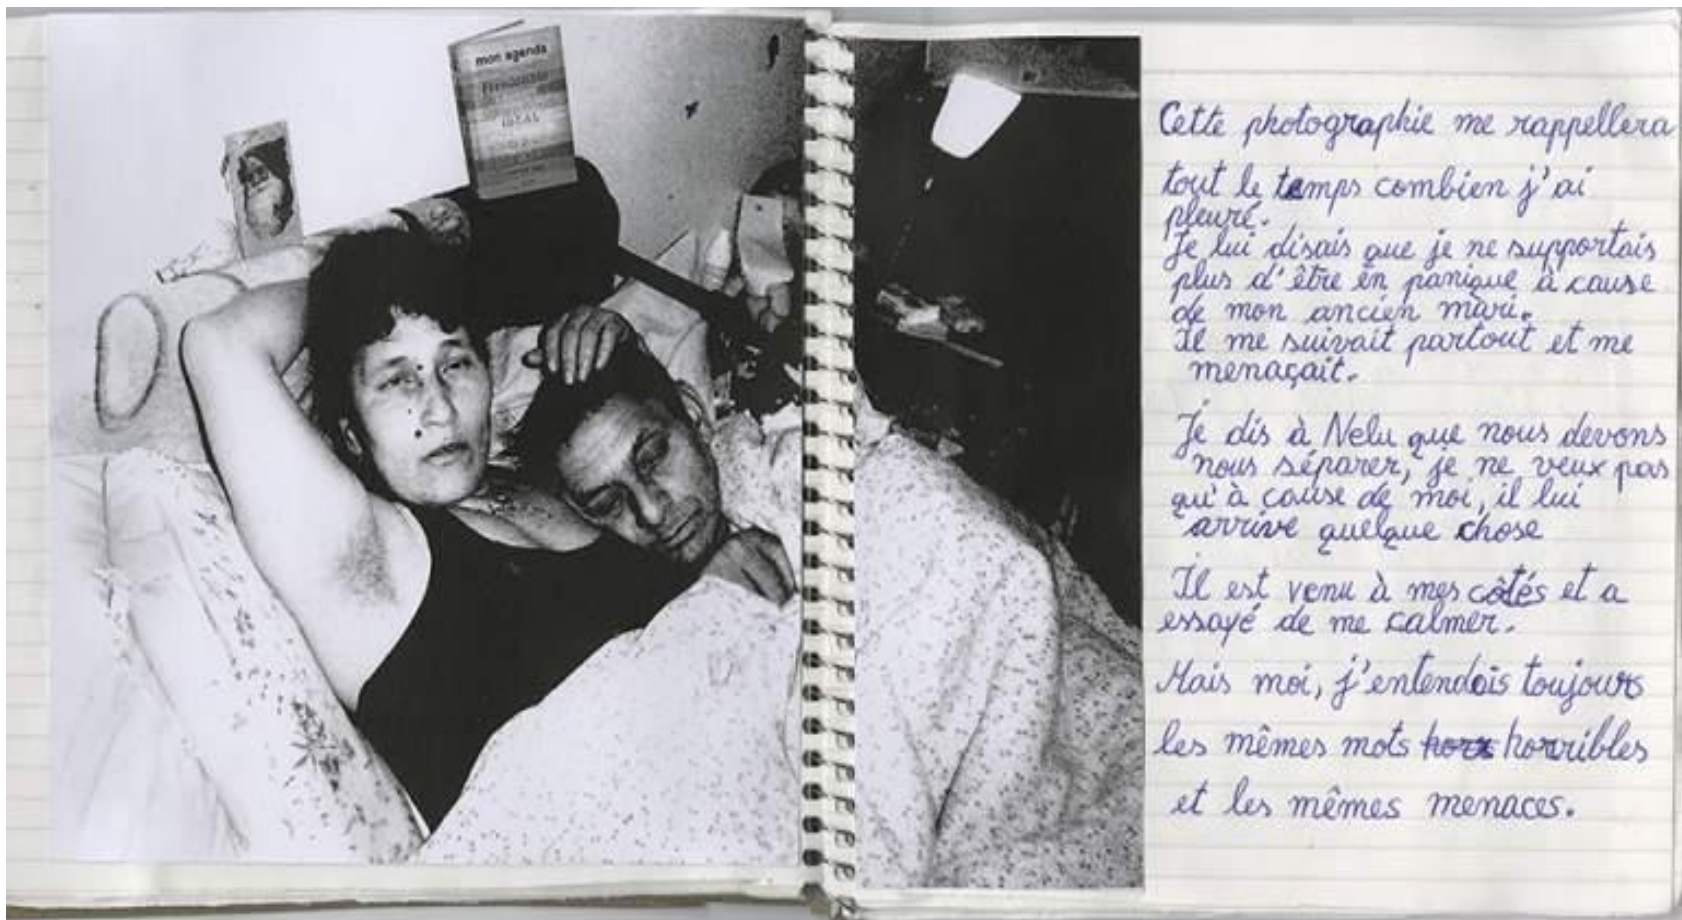 mon agenda
IDEAL
Cette photographie me rappellera
tout le temps combien j'ai
pleuré.
Je lui disais que je ne supportais
plus d'être en panique à cause
de mon ancien mari.
Il me suivait partout et me
menaçait.
Je dis à Nelu que nous devons
nous séparer, je ne veux pas
qu'à cause de moi, il lui
arrive quelque chose
Il est venu à mes côtés et a
essayé de me calmer.
Mais moi, j'entendais toujours
les mêmes mots horribles
et les mêmes menaces.